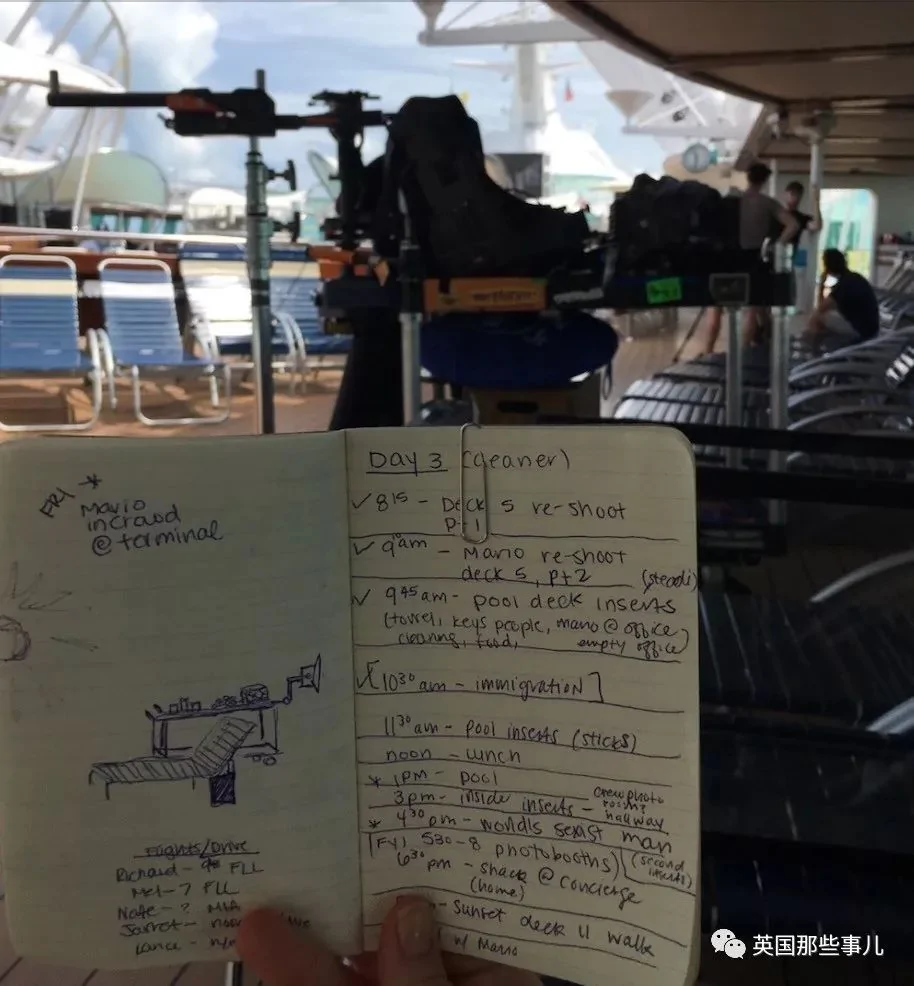 FRI *
Mario
in crowd
@ terminal
Flights/Drive
Richard - FLL
Mel - 7 FLL
Nate - ? MIA
Jarret -
Lance -
Day 3 (cleaner)
✓ 8¹⁵ - Deck 5 re-shoot
✓ 9am - Mario re-shoot
deck 5, pt 2 (steadi)
✓ 9⁴⁵am - pool deck inserts
(towel, keys people, mario @ office
cleaning, food, empty office)
✓ [10³⁰am - immigration]
11³⁰am - pool inserts (sticks)
noon - lunch
* 1pm - pool
3pm - inside inserts - crew photo
hallway
* 4³⁰pm - worlds sexist man
[FYI 530-8 photobooths] (second
inserts)
6³⁰pm - shack @ concierge
(home)
- sunset deck 11 walk
w/ Mario
英国那些事儿